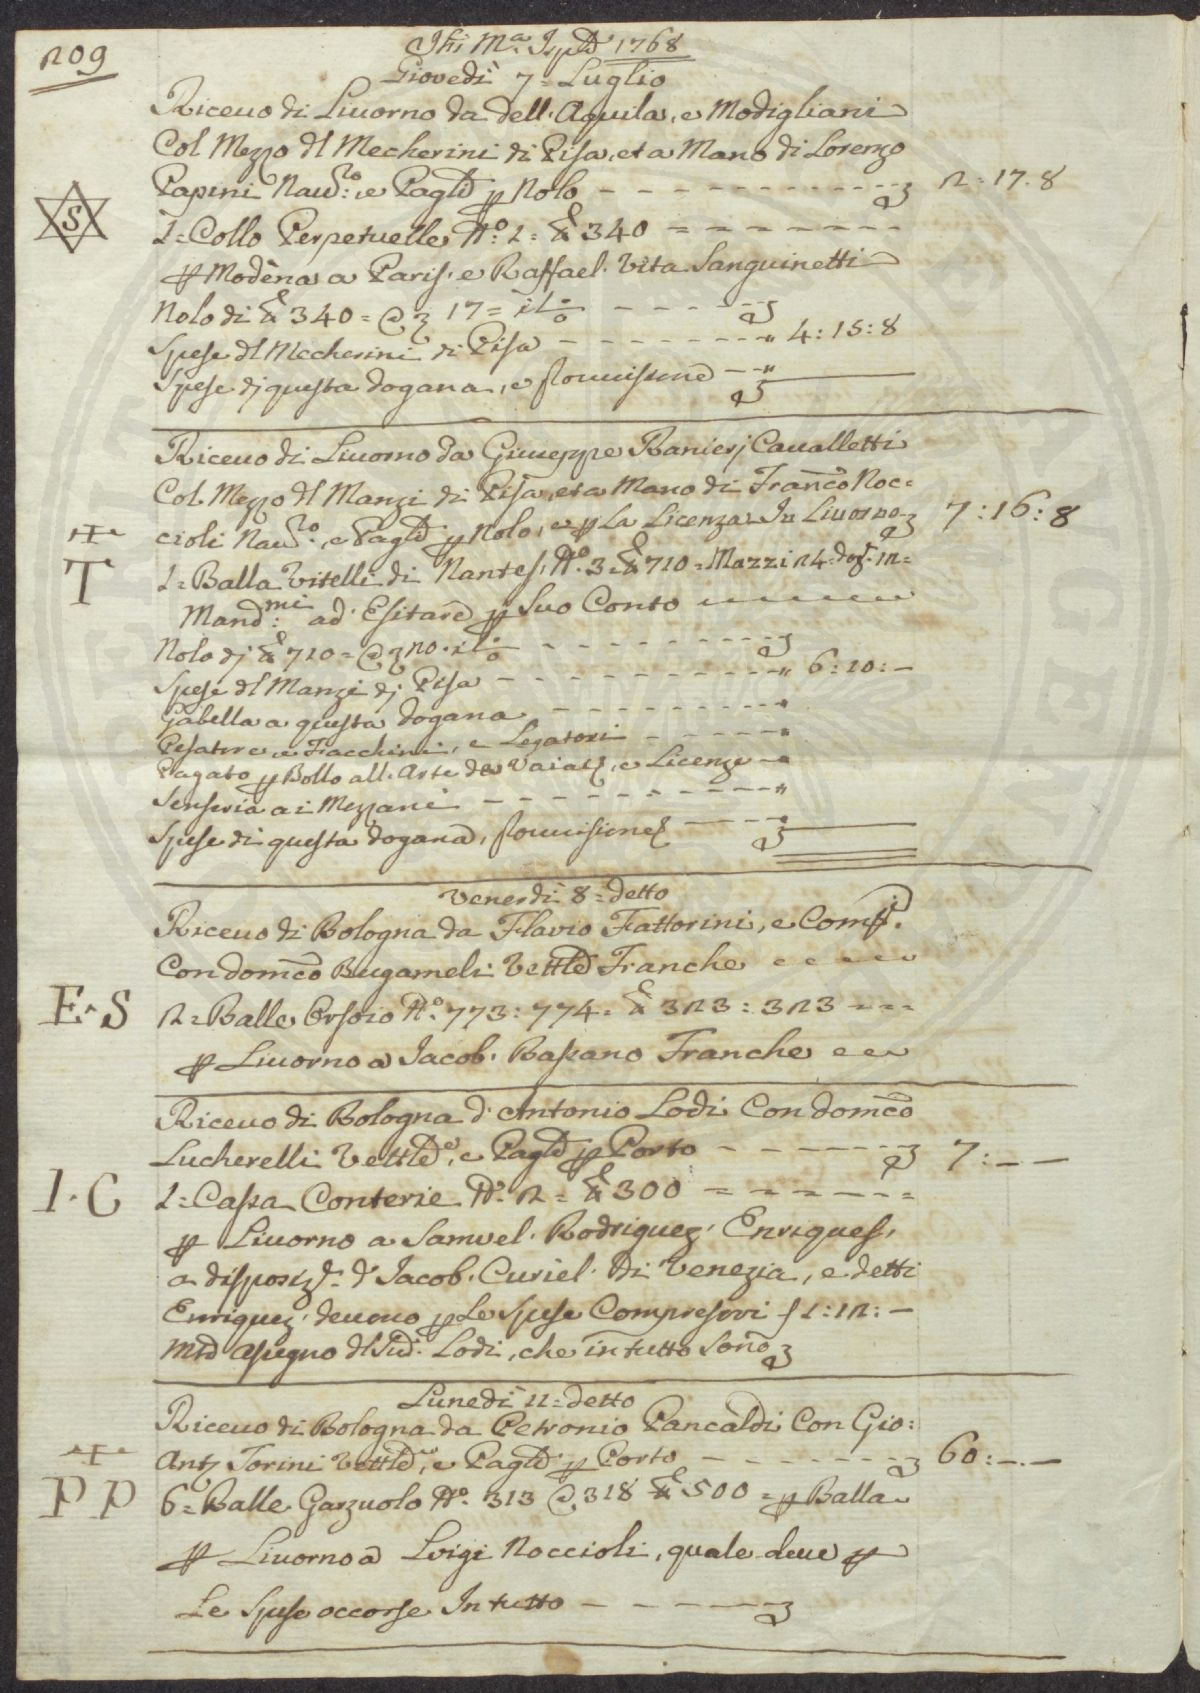 209
Jhs Mª Jpħ 1768
Giovedì 7= Luglio
Riceuo di Liuorno da dell'Aquila, e Modigliani
Col Mezzo dl Mecherini di Pisa, et a Mano di Lorenzo
Papini Nauo: e Pagto p Nolo 2:17.8
S
1=Collo Perpetuelle No: 1= £ 340
p Modena a Paris. e Raffael. Vita Sanguinetti
Nolo di £ 340= @ 17= il %
Spese dl Mecherini di Pisa 4:15:8
Spese di questa dogana, e
Riceuo di Liuorno da Giuseppe Ranierj Caualletti
Col Mezzo dl Manzi di Pisa, et a Mano di Franco Noc=
cioli Nauo: e Pagto p Nolo, e p La Licenza In Liuorno 7:16:8
T
1=Balla Vitelli di Nantes. No. 3 £ 710= Mazzi 24 dos. 12=
Mandmi: ad Esitare p Suo Conto
Nolo dj £ 710= @ 20. il %
Spese dl Manzi dj Pisa 6:10:-
Gabella a questa dogana
Pesatore e Facchini, e Legatori
Pagato p Bollo all'Arte de Vaiai, e Licenze
Senseria ai Mezzani
Spese di questa dogana,
Venerdì 8= detto
Riceuo di Bologna da Flavio Fattorini, e Compi.
Con domco Bugameli Vettle Franche
E.S
2=Balle Orsoio No. 773: 774= £ 323: 323
p Liuorno a Jacob. Bassano Franche
Riceuo di Bologna d'Antonio Lodi Con domco
Lucherelli Vettle, e Pagto p Porto 7:--
I.C
1=Cassa Conterie No. 2= £ 300
p Liuorno a Samuel. Rodriguez Enriques,
a disposizne d'Jacob. Curiel. di Venezia, e detti
Enriquez deuono p Le Spese Compresovi £ 1:12:-
assegno dl Sud. Lodi, che in tutto Sono
Lunedì 11= detto
Riceuo di Bologna da Petronio Pancaldi Con Gio:
Anto Torini Vettle, e Pagto p Porto 60:--
PP
6=Balle Garzuolo No. 313 @ 318 £ 500= p Balla
p Liuorno a Luigi Noccioli, quale deue p
Le Spese occorse In tutto